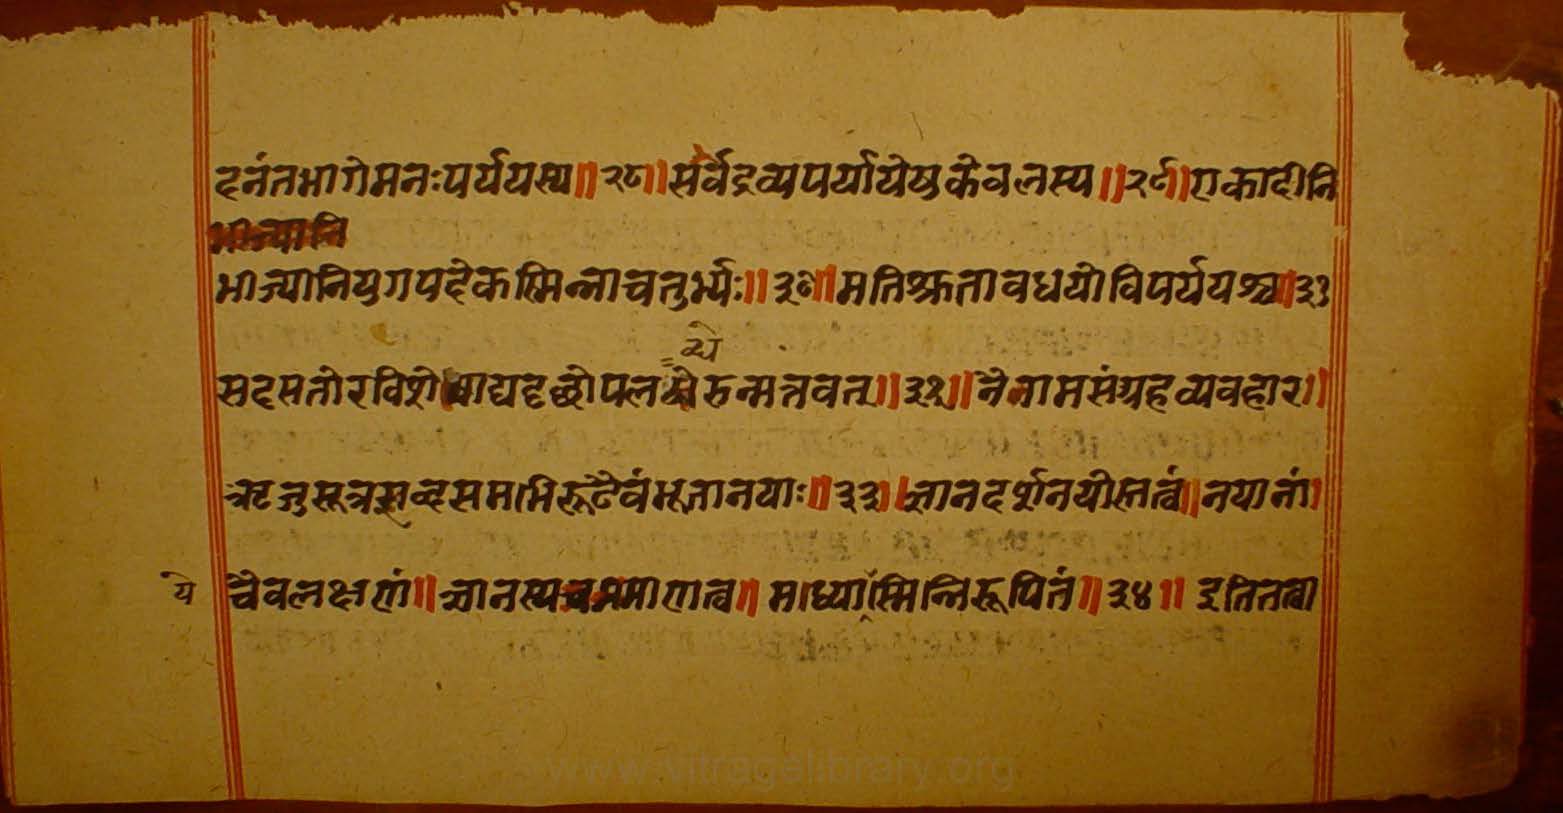 दनंतभागेमनःपर्ययस्य॥२८॥सर्वद्रव्यपर्यायेषुकेवलस्य॥२९॥एकादीनि
भाज्यानि
भाज्यानियुगपदेकस्मिन्नाचतुर्भ्यः॥३०॥मतिश्रुतावधयोविपर्ययश्च॥३१
ब्धे
सदसतोरविशेषाद्यदृछोपलब्धेरुन्मत्तवत्॥३२॥नैगमसंग्रहव्यवहार॥
ऋजुसूत्रसब्दसमाभिरूढैवंभूतानयाः॥३३॥ज्ञानदर्शनयोस्तत्वं॥नयानां।
ये
चैवलक्षणं॥ज्ञानस्यचप्रमाणत्व॥माध्यास्मिन्निरूपितं॥३४॥ इतितत्वा
www.vitragelibrary.org